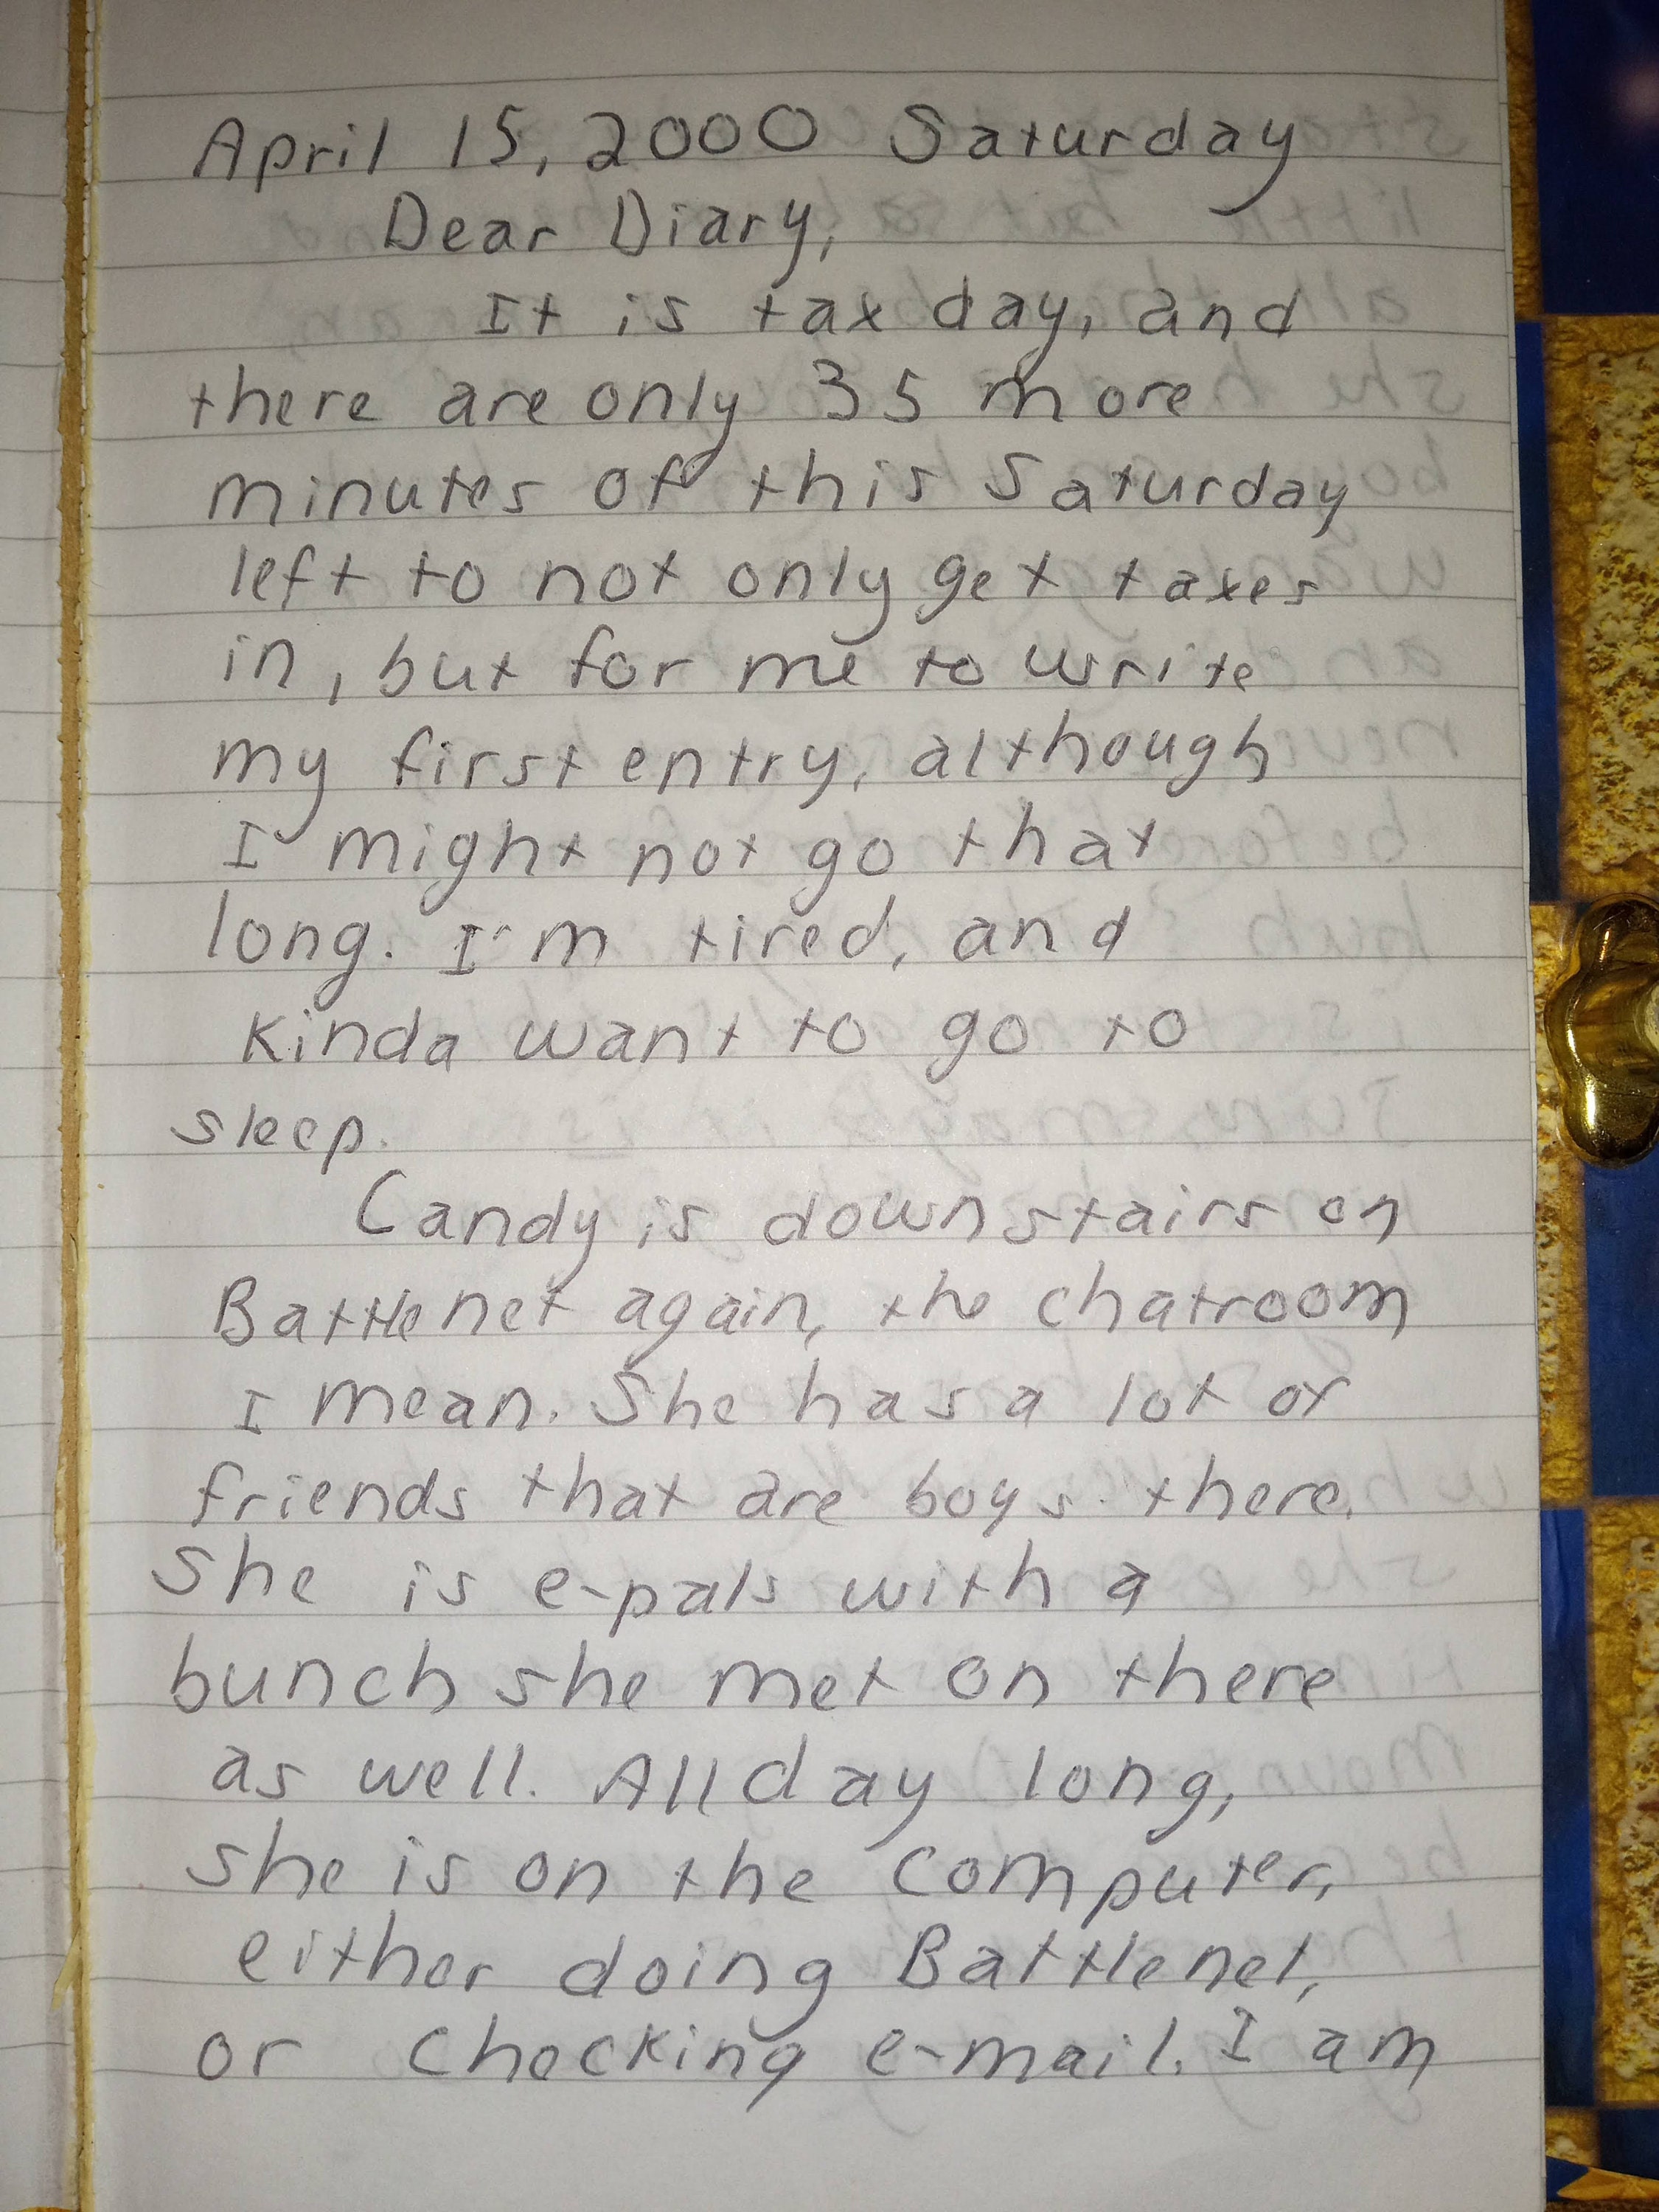 April 15, 2000 Saturday
Dear Diary,
It is tax day, and
there are only 35 more
minutes of this Saturday
left to not only get taxes
in, but for me to write
my first entry, although
I might not go that
long. I'm tired, and
kinda want to go to
sleep.
Candy is downstairs on
Battlenet again, the chatroom
I mean. She has a lot of
friends that are boys there.
She is e-pals with a
bunch she met on there
as well. All day long,
she is on the computer,
either doing Battlenet,
or checking e-mail. I am